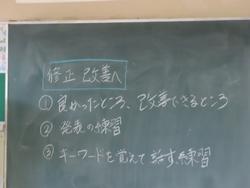 修正 改善へ
① 良かったところ、改善できるところ
② 発表の練習
③ キーワードを覚えて話す練習